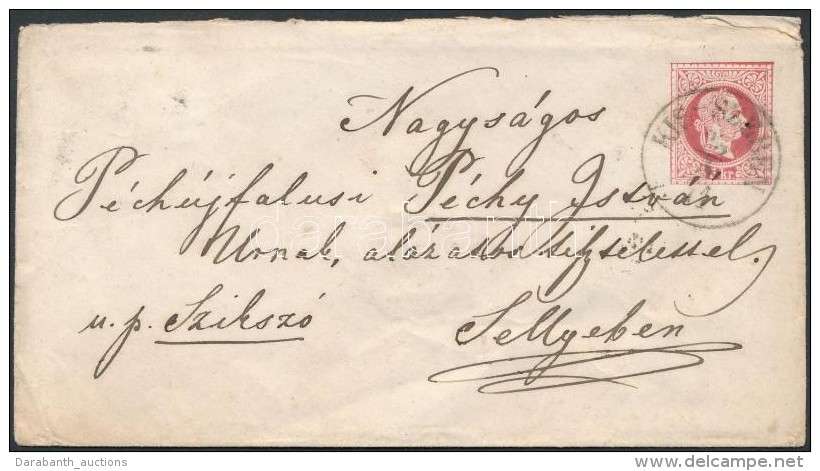 Nagyságos
Péchújfalusi Péchy István
Urnak, alázatos tisztelettel.
u. p. Szikszó Sellyeben
KIS-
darabanth
Darabanth_auctions
www.delcampe.net